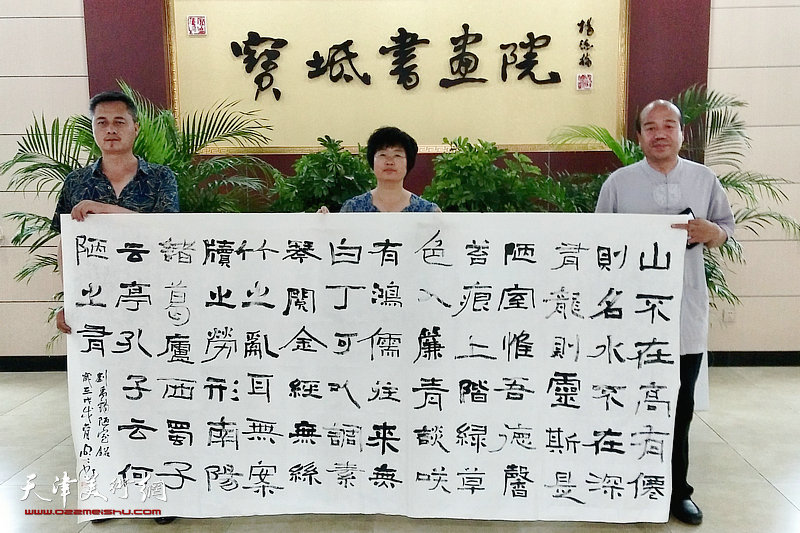 寶坻書畫院
山不在高有僊
則名水不在深
有龍則靈斯是
陋室惟吾德馨
苔痕上階緑草
色入簾青談咲
有鴻儒往来無
白丁可以調素
琴閱金經無絲
竹之亂耳無案
牘之勞形南陽
諸葛廬西蜀子
云亭孔子云何
陋之有
劉禹錫陋室銘
天津美術網
www.022meishu.com